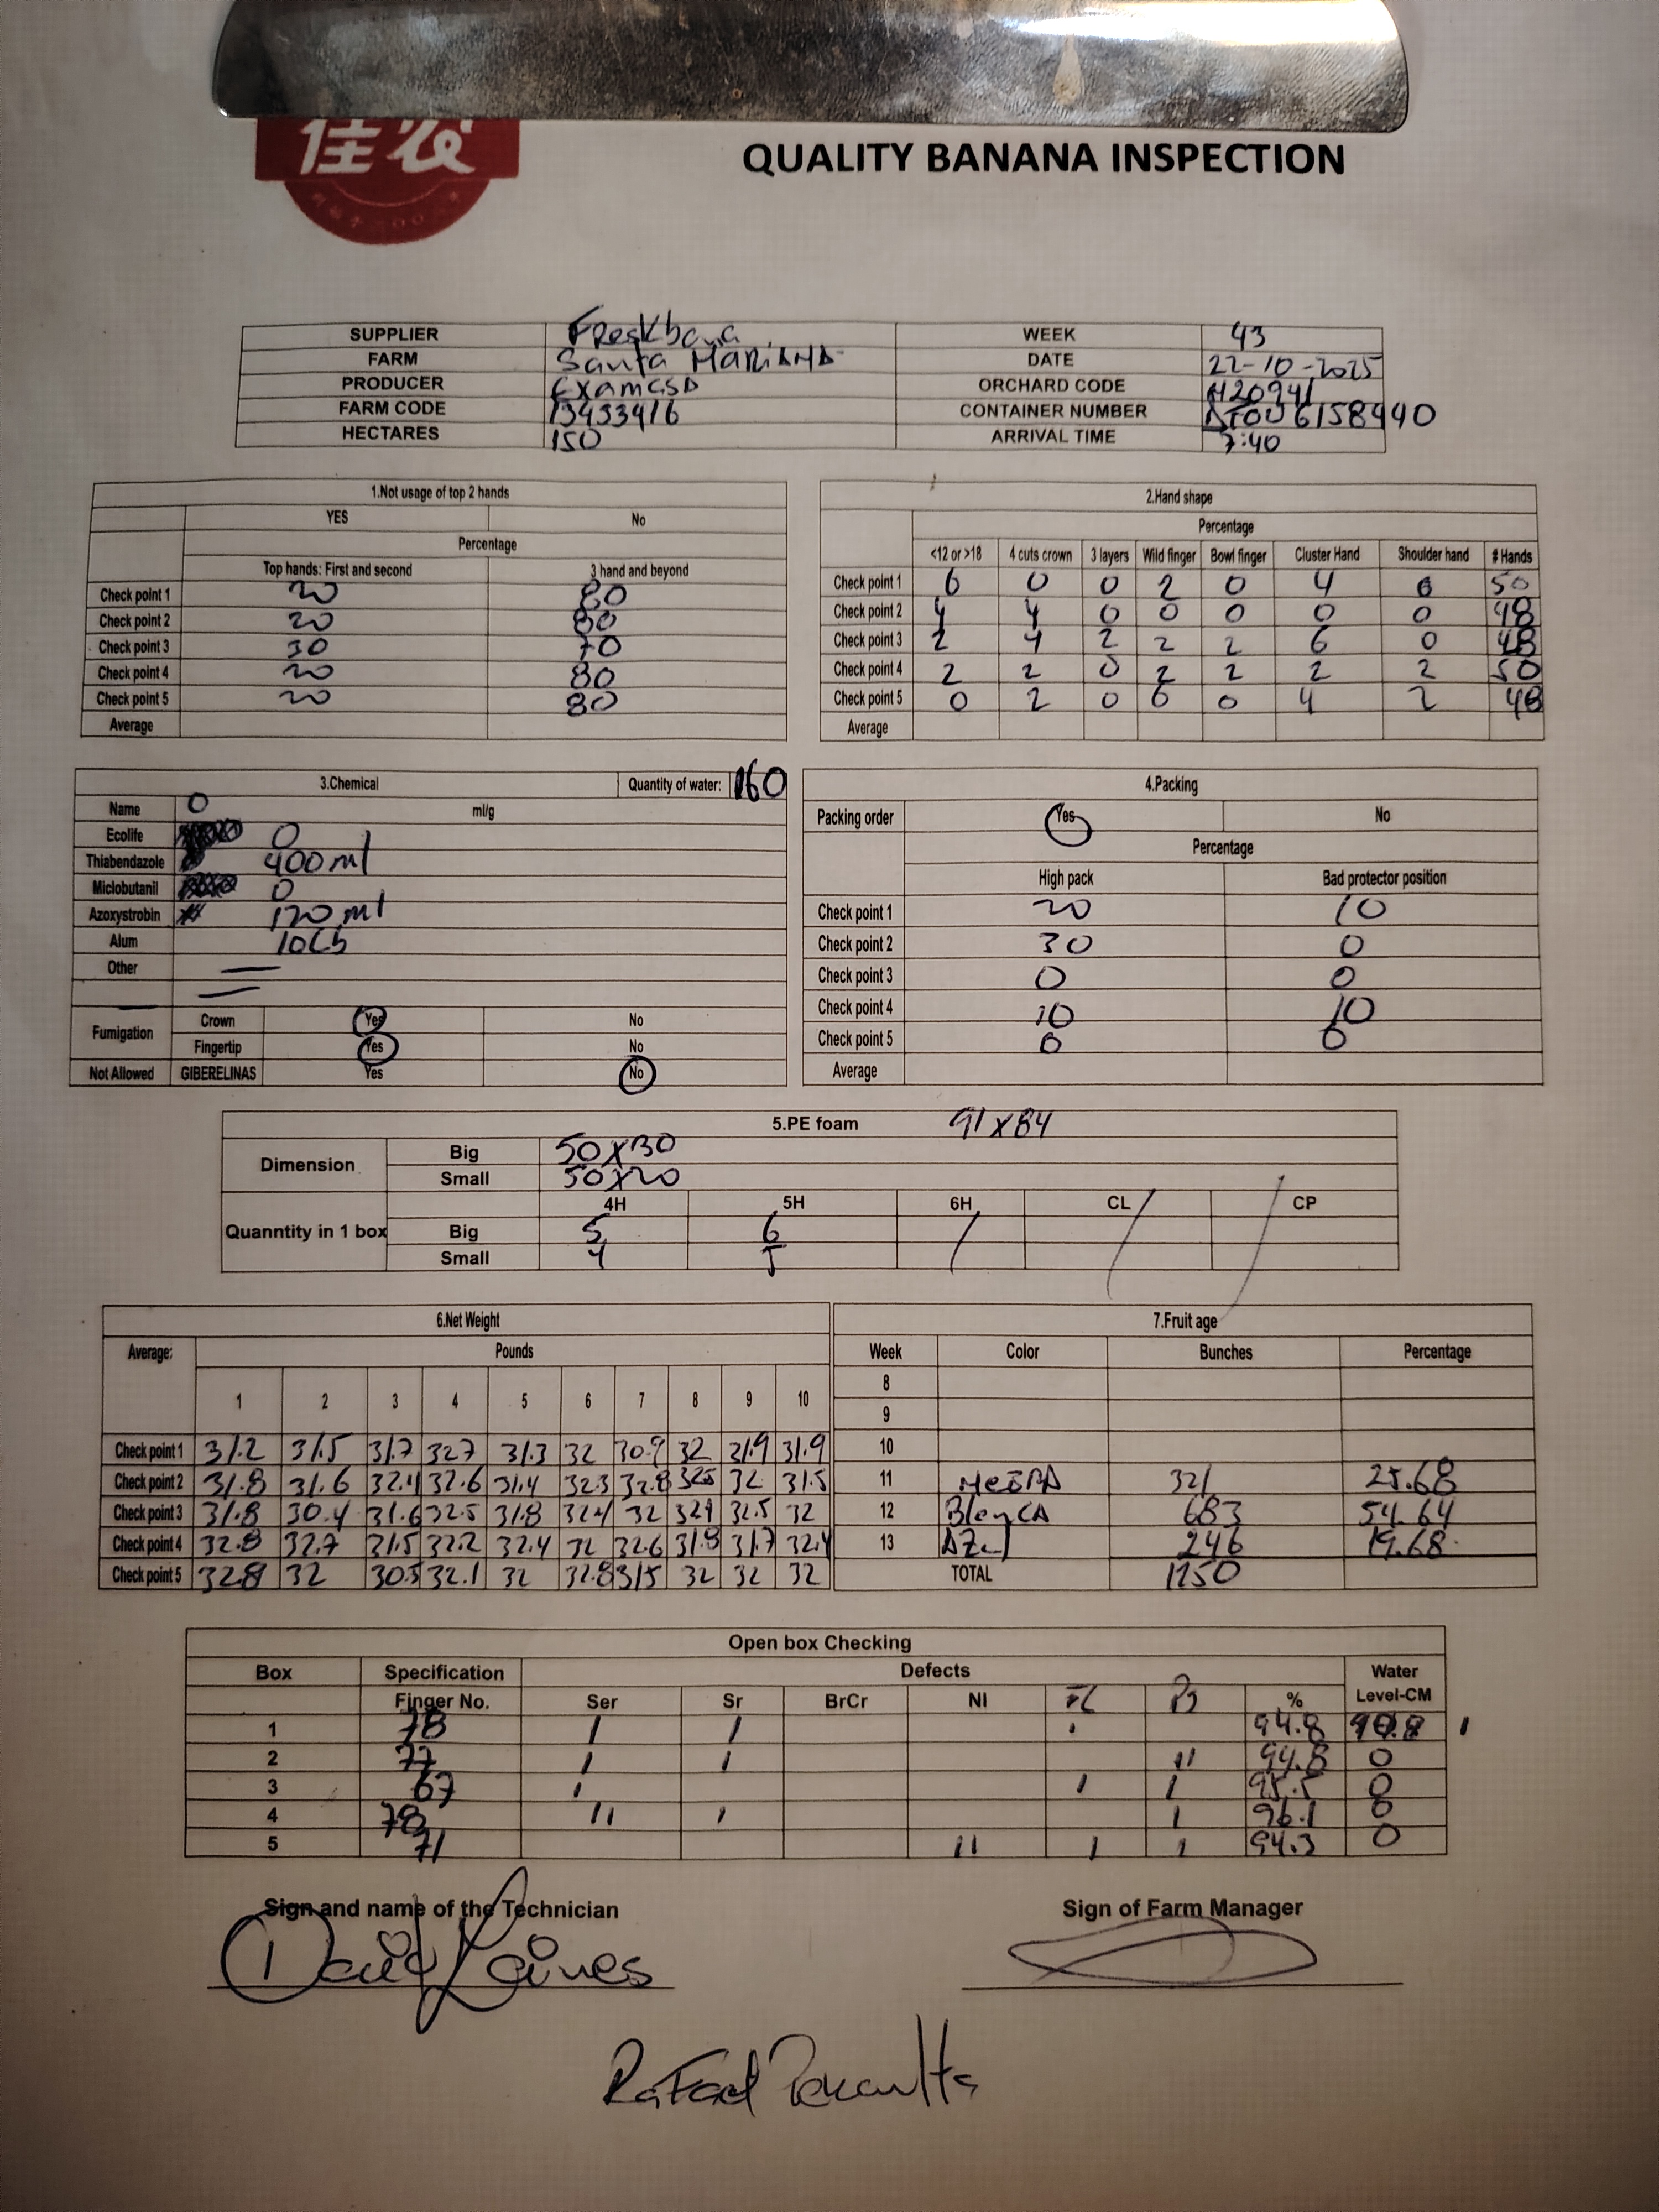 佳农
QUALITY BANANA INSPECTION
SUPPLIER Freskbana WEEK 43
FARM Santa MARiANA DATE 22-10-2025
PRODUCER ORCHARD CODE H20941
FARM CODE 13433416 CONTAINER NUMBER 6158440
HECTARES 150 ARRIVAL TIME 7:40
1.Not usage of top 2 hands
YES No
Percentage
Top hands: First and second 3 hand and beyond
Check point 1 20 80
Check point 2 20 80
Check point 3 30 70
Check point 4 20 80
Check point 5 20 80
Average
2.Hand shape
Percentage
<12 or >18 4 cuts crown 3 layers Wild finger Bowl finger Cluster Hand Shoulder hand # Hands
Check point 1 6 0 0 2 0 4 0 50
Check point 2 4 4 0 0 0 0 0 48
Check point 3 2 4 2 2 2 6 0 48
Check point 4 2 2 0 2 2 2 2 50
Check point 5 0 2 0 6 0 4 2 48
Average
3.Chemical Quantity of water: 160
Name 0 ml/g
Ecolife 0
Thiabendazole 400 ml
Miclobutanil 0
Azoxystrobin 120 ml
Alum 10Lb
Other —
Fumigation Crown Yes No
Fingertip Yes No
Not Allowed GIBERELINAS Yes No
4.Packing
Packing order Yes No
Percentage
High pack Bad protector position
Check point 1 20 10
Check point 2 30 0
Check point 3 0 0
Check point 4 10 10
Check point 5 0 0
Average
5.PE foam 91 x 84
Dimension Big 50 x 30
Small 50 x 20
4H 5H 6H CL CP
Quanntity in 1 box Big 5 6
Small 4 5
6.Net Weight
Average: Pounds
1 2 3 4 5 6 7 8 9 10
Check point 1 31.2 31.5 31.7 32.7 31.3 32 30.9 32 31.9 31.9
Check point 2 31.8 31.6 32.4 32.6 31.4 32.3 32.8 32.5 32 31.5
Check point 3 31.8 30.4 31.6 32.5 31.8 32.4 32 32.9 32.5 32
Check point 4 32.8 32.7 31.5 32.2 32.4 32 32.6 31.8 31.7 32.4
Check point 5 32.8 32 30.5 32.1 32 32.8 31.5 32 32 32
7.Fruit age
Week Color Bunches Percentage
8
9
10
11 NegRA 321 25.68
12 BlanCA 683 54.64
13 AZul 246 19.68
TOTAL 1250
Open box Checking
Box Specification Defects Water
Finger No. Ser Sr BrCr NI FL % Level-CM
1 78 I I I 94.8 1
2 77 I I II 94.8 0
3 67 I I I 95.5 0
4 78 II I I 96.1 0
5 71 II I I 94.3 0
Sign and name of the Technician Sign of Farm Manager
David Laines
Rafael